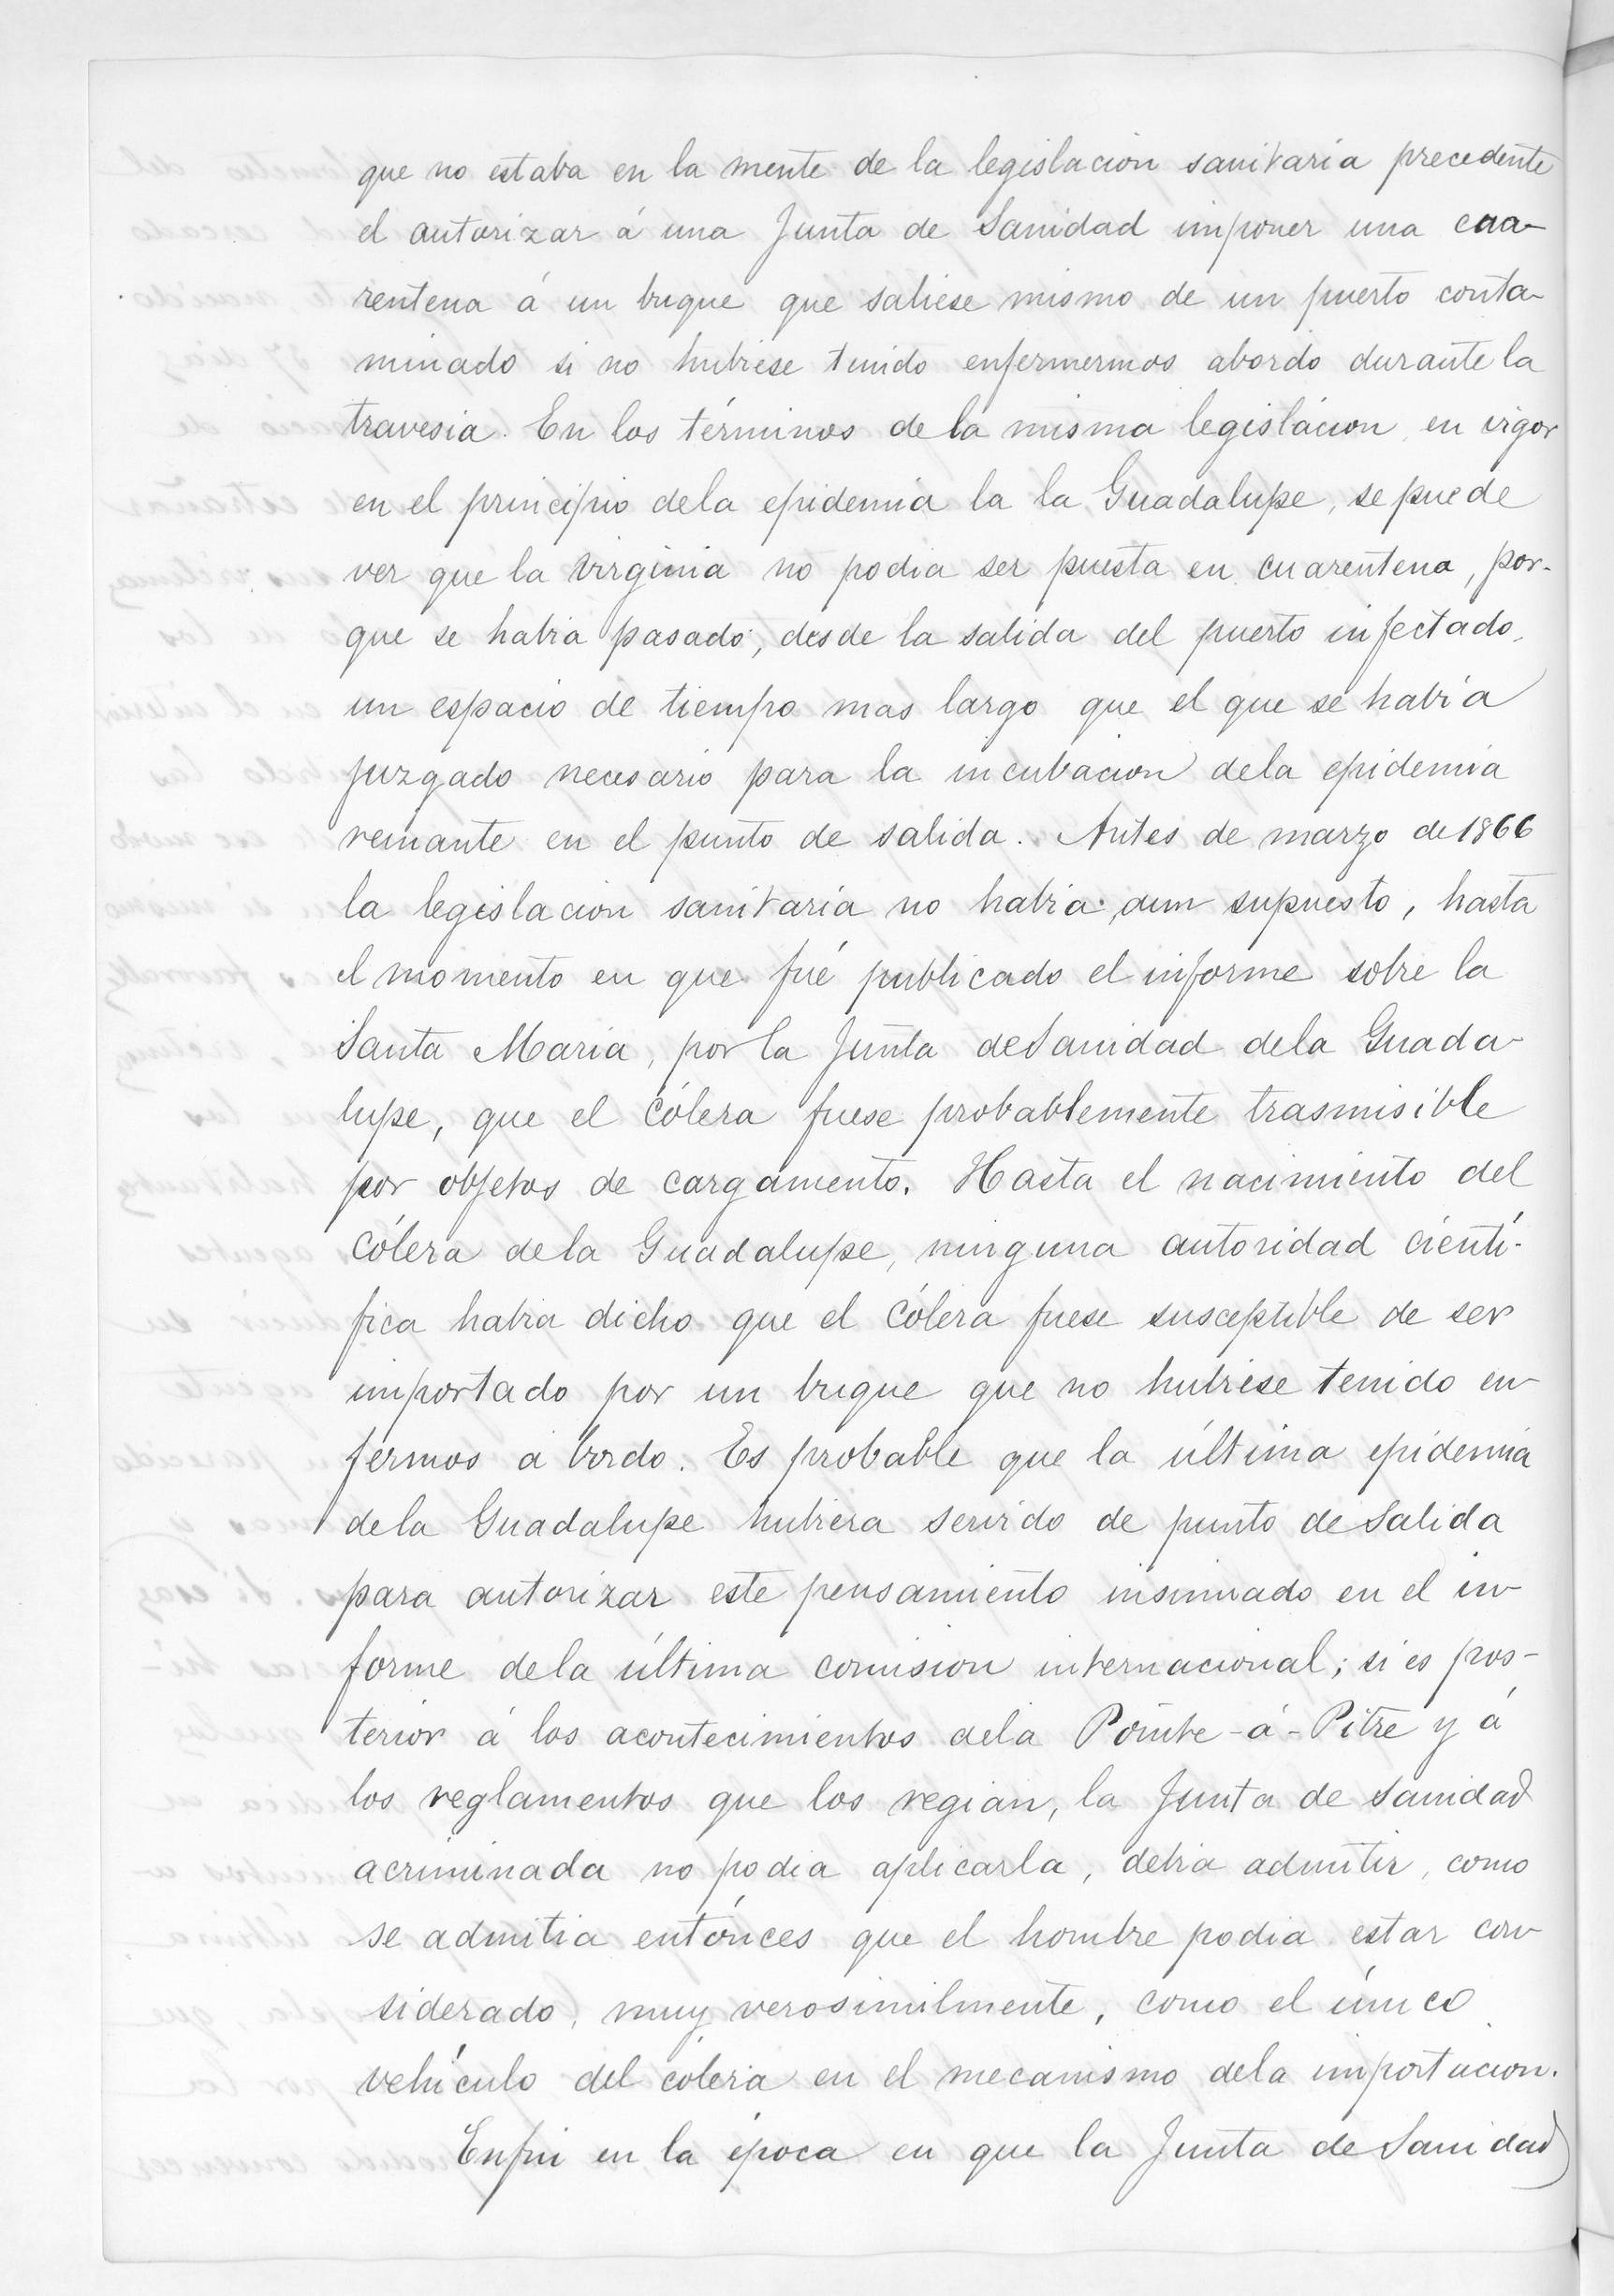 que no estaba en la mente de la legislacion sanitaria precedente
el autorizar á una Junta de Sanidad imponer una cua-
rentena á un buque que saliese mismo de un puerto conta-
minado si no hubiese tenido enfermermos abordo durante la
travesia. En los términos de la misma legislácion en vigor
en el principio dela epidemia la la Guadalupe, se puede
ver que la Virginia no podia ser puesta en cuarentena, por-
que se habia pasado, desde la salida del puerto infectado,
un espacio de tiempo mas largo que el que se había
juzgado necesario para la incubacion dela epidemia
reinante en el punto de salida. Antes de marzo de 1866
la legislacion sanitaria no habia aun supuesto, hasta
el momento en que fué publicado el informe sobre la
Santa Maria, por la Junta de Sanidad dela Guada-
lupe, que el cólera fuese probablemente trasmisible
por objetos de cargamento. Hasta el nacimiento del
cólera dela Guadalupe, ninguna autoridad cientí-
fica habia dicho que el cólera fuese susceptible de ser
importado por un buque que no hubiese tenido en-
fermos á bordo. Es probable que la última epidemia
dela Guadalupe hubiera servido de punto de salida
para autorizar este pensamiento insinuado en el in-
forme dela última comision internacional; si es pos-
terior á los acontecimientos dela Pointe-á-Pitre y á
los reglamentos que los regian, la Junta de Sanidad
acriminada no podia aplicarla, debia admitir, como
se admitia entónces que el hombre podia estar con-
siderado, muy verosimilmente, como el único
vehículo del cólera en el mecanismo dela importacion.
Enfin en la época en que la Junta de Sanidad